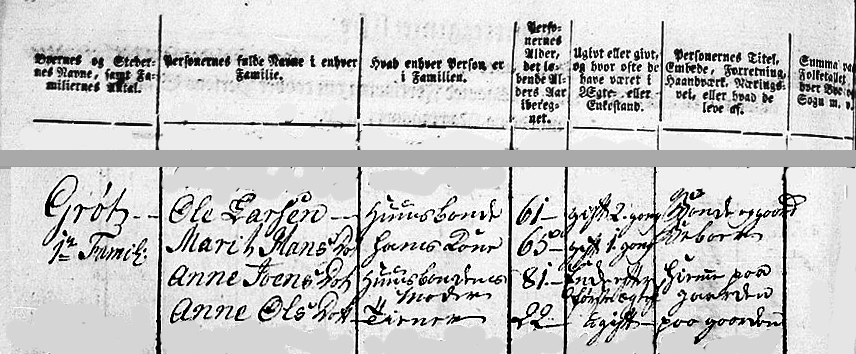 Byernes og Stedernes Navne, samt Familiernes Antal.
Personernes fulde Navne i enhver Familie.
Hvad enhver Person er i Familien.
Personernes Alder, det løbende Alders Aar iberegnet.
Ugivt eller givt, og hvor ofte de have været i Ægte- eller Enkestand.
Personernes Titel, Embede, Forretning, Haandværk, Næringsvei, eller hvad de leve af.
Summa paa Folketallet
Grøtz Ole Larsen Huusbonde 61 gift 2. gang Bonde og gaard
1te Famil: Marith Hans Dot hans Kone 65 gift 1. gang Beboer
Anne Joens Dot Huusbondens Moder 81 Enke efter hiemme paa gaarden
Anne Ols Dot Tiener 22 ugift paa gaarden